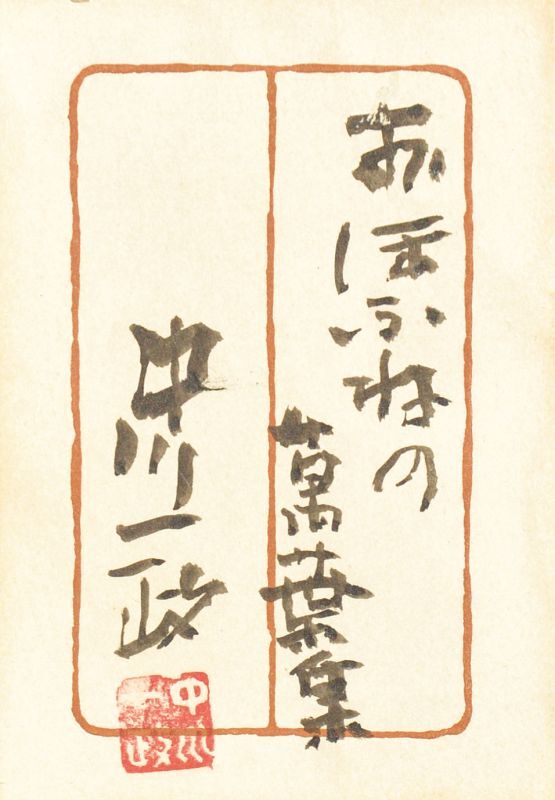 おほふねの
萬葉集
中川一政
中川
一政